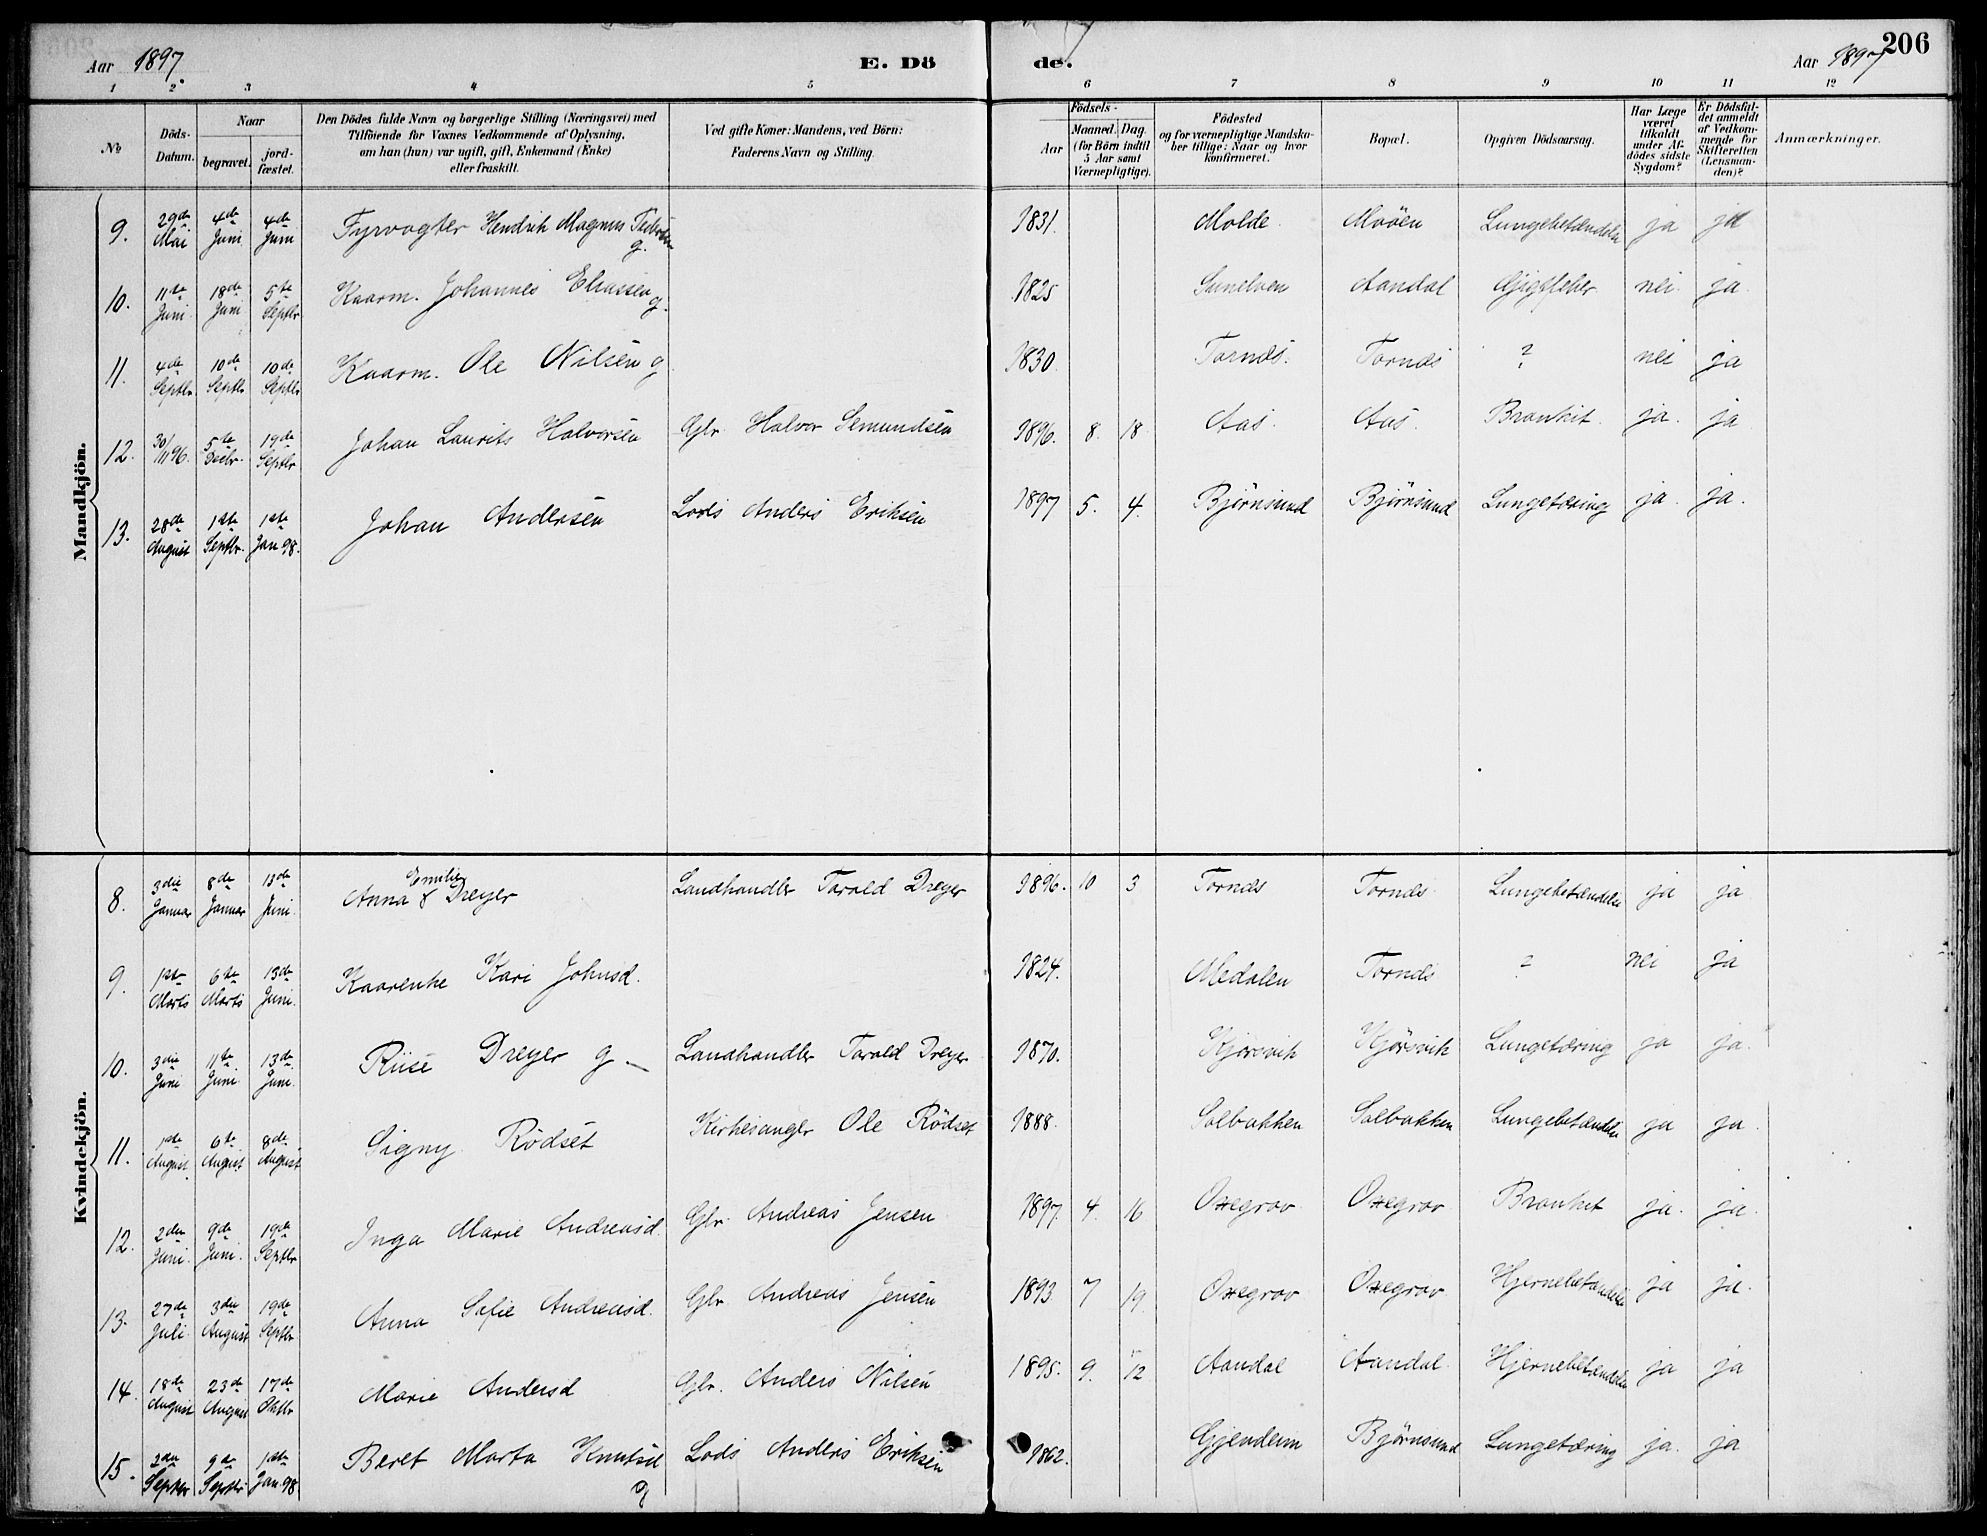 206
Aar 1897. E. Dö de. Aar 1897
1 2 3 4 5 6 7 8 9 10 11 12
No. Döds-Datum. Naar begravet. jord-fæstet. Den Dödes fulde Navn og borgerlige Stilling (Næringsvei) med Tilföiende for Voxnes Vedkommende af Oplysning, om han (hun) var ugift, gift, Enkemand (Enke) eller fraskilt. Ved gifte Koner: Mandens, ved Börn: Faderens Navn og Stilling. Födsels- Aar Maaned. Dag. (for Börn indtil 5 Aar samt Værnepligtige). Födested og for værnepligtige Mandska-ber tillige: Naar og hvor konfirmeret. Bopæl. Opgiven Dödsaarsag. Har Læge været tilkaldt under Af-dödes sidste Sygdom? Er Dödsfal-det anmeldt af Vedkom-mende for Skifteretten (Lensman-den)? Anmærkninger.
Mandkjön.
9. 29de Mai 4de Juni 4de Juni Fyrvogter Hendrik Magnus g. 1831. Molde Moöen Lungebetændelse ja ja
10. 11te Juni 18de Juni 5te Septbr Kaarm. Johannes Eliassen g. 1825 Sunelven Aandal Gigtfeber nei ja
11. 4de Septbr 10de Septbr 10de Septbr Kaarm. Ole Nilsen g. 1830 Tornæs Tornæs ? nei ja
12. 30/11 96. 5te Decbr. 19de Septbr Johan Laurits Halvorsen Gbr. Halvor Semundsen 1896. 8. 18. Aas. Aas. Bronkit. ja. ja
13. 28de August 1ste Septbr. 1ste Jan 98. Johan Andersen Lods Anders Eriksen 1897 5. 4. Bjørnsund Bjørnsund Lungetæring ja. ja.
Kvindekjön.
8. 3die Januar 8de Januar 13de Juni Anna Emilie Dreyer Landhandler Tarald Dreyer 1896. 10 3 Tornæs Tornæs Lungebetændelse ja ja
9. 1ste Marts 6te Marts 13de Juni. Kaarenke Kari Johnsd. 1824. Medalen Tornæs ? nei ja
10. 3die Juni 11te Juni 13de Juni. Riise Dreyer g - Landhandler Tarald Dreyer 1870. Kjørsvik Kjørsvik Lungetæring ja ja.
11. 1ste August. 6te August 8de August Signy Rödset Kirkesanger Ole Rödset 1888. Solbakken Solbakken Lungebetændelse ja ja.
12. 2den Juni. 9de Juni. 19de Septbr Inga Marie Andreasd. Gbr. Andreas Jensen 1897. 4. 16 Oxegrov Oxegrov Bronkit ja. ja.
13. 27de Juli. 3die August 19de Septbr Anna Sofie Andreasd. Gbr. Andreas Jensen 1893 7 19. Oxegrov Oxegrov Hjernebetændelse ja ja.
14. 18de August 23de August 17de Oktbr Marie Andersd Gbr. Anders Nilsen 1895. 9. 12 Aandal Aandal. Hjernebetændelse ja ja
15. 2den Septbr 9de Septbr 1ste Jan. 98. Beret Marta Knutsd g Lods Anders Eriksen 1862. Gjendem Bjørnsund Lungetæring ja. ja